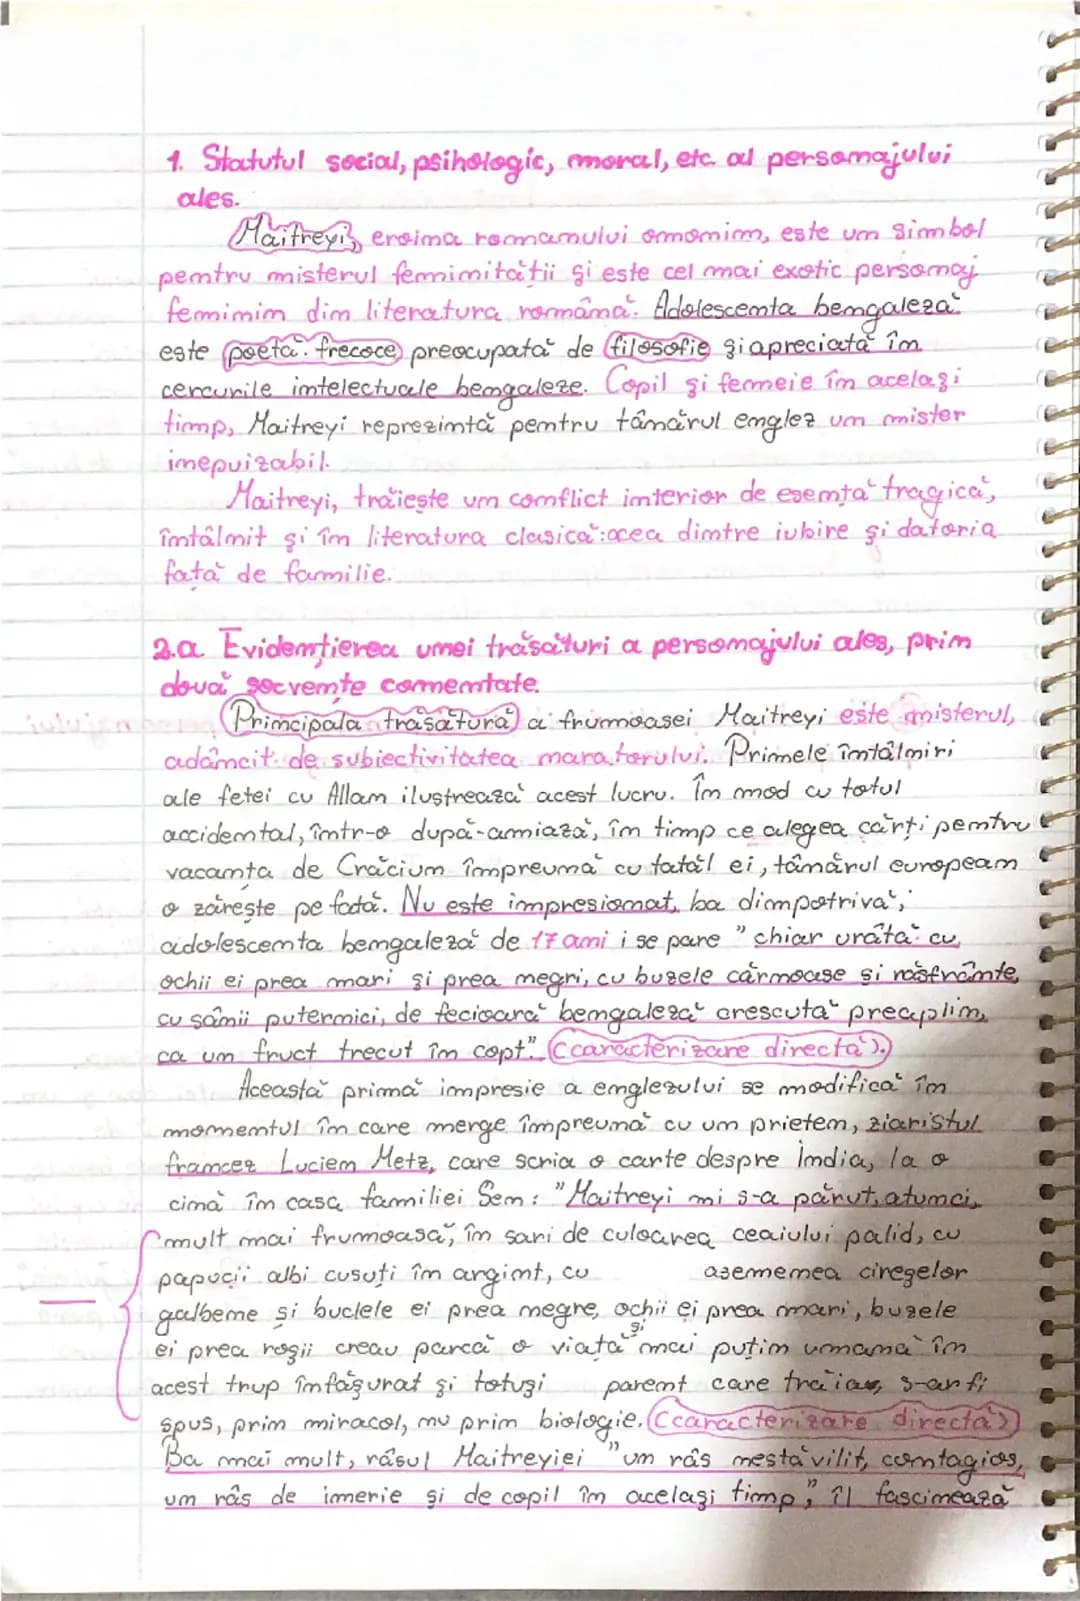 1. Statutul social, psihologic, moral, etc. al personajului
ales.
Maitreyi, eroina romanului omonim, este un simbol
pentru misterul feminității și este cel mai exotic personaj
feminin din literatura română. Adolescenta bengaleză
este poetă frecoce, preocupată de filosofie și apreciată în
cercurile intelectuale bengaleze. Copil și femeie în același
timp, Maitreyi reprezintă pentru tânărul englez un mister
inepuizabil.
Maitreyi, trăiește un conflict interior de esență tragică,
întâlnit și în literatura clasică: acea dintre iubire și datoria
față de familie.
2.a Evidențierea unei trăsături a personajului ales, prim
două secvente comentate.
Principala trăsătură a frumoasei Maitreyi este misterul,
adâncit de subiectivitatea naratorului. Primele întâlniri
ale fetei cu Allan ilustrează acest lucru. În mod cu totul
accidental, într-o după-amiază, în timp ce alegea cărți pentru
vacanța de Crăciun împreună cu tatăl ei, tânărul european
o zărește pe fată. Nu este impresionat, ba dimpotrivă;
adolescenta bengaleză de 17 ani i se pare "chiar urâtă cu
ochii ei prea mari și prea negri, cu buzele cărnoase și răsfrânte,
cu sânii puternici, de fecioară bengaleză crescută prea plin,
ca un fruct trecut în copt". (caracterizare directă).
Această primă impresie a englezului se modifică în
momentul în care merge împreună cu un prieten, ziaristul
francez Lucien Metz, care scria o carte despre India, la o
cină în casa familiei Sen: "Maitreyi mi s-a părut, atunci,
mult mai frumoasă, în sari de culoarea ceaiului palid, cu
papucii albi cusuți în argint, cu asemenea cireșelor
galbene și buclele ei prea negre, ochii ei prea mari, buzele
ei prea roșii creau parcă o viață și mai puțin umană în
acest trup înfășurat și totuși parent care trăia, s-ar fi
spus, prin miracol, nu prin biologie. (caracterizare directă)
Ba mai mult, râsul Maitreyiei "un râs nestăvilit, contagios,
un râs de inerie și de copil în același timp", îl fascinează